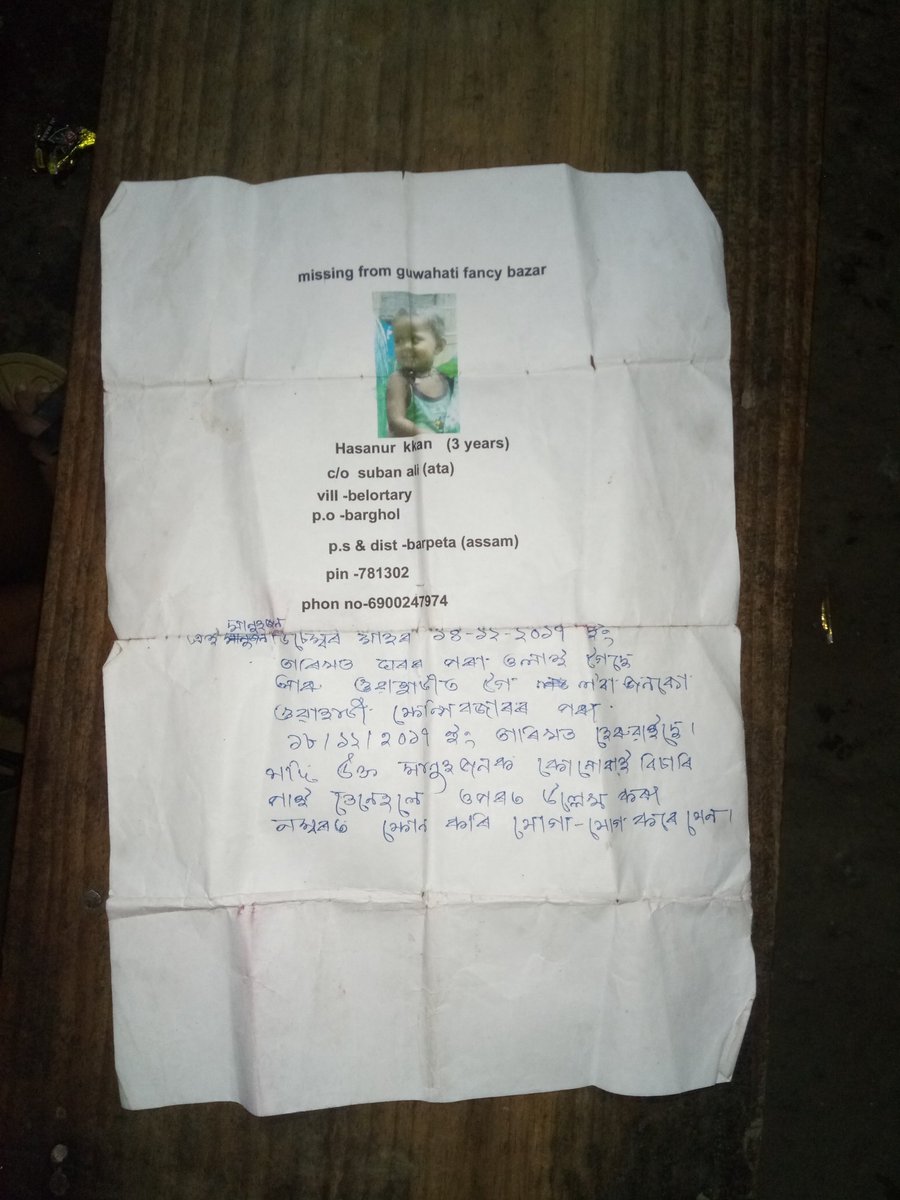 missing from guwahati fancy bazar
Hasanur kkan (3 years)
c/o suban ali (ata)
vill -belortary
p.o -barghol
p.s & dist -barpeta (assam)
pin -781302
phon no-6900247974
মানুহজন
এই ডিচেম্বৰ মাহৰ ১৪-১২-২০১৭ ইং
তাৰিখত ঘৰৰ পৰা ওলাই গৈছে
আৰু গুৱাহাটীত গৈ লৰা জনকো
গুৱাহাটী ফেন্সিবজাৰৰ পৰা
১৮/১২/২০১৭ ইং তাৰিখত হেৰুৱাইছে।
যদি উক্ত মানুহজনক কোনোবাই বিচাৰি
পাই তেনেহলে ওপৰত উল্লেখ কৰা
নম্বৰত ফোন কৰি যোগা-যোগ কৰে যেন।